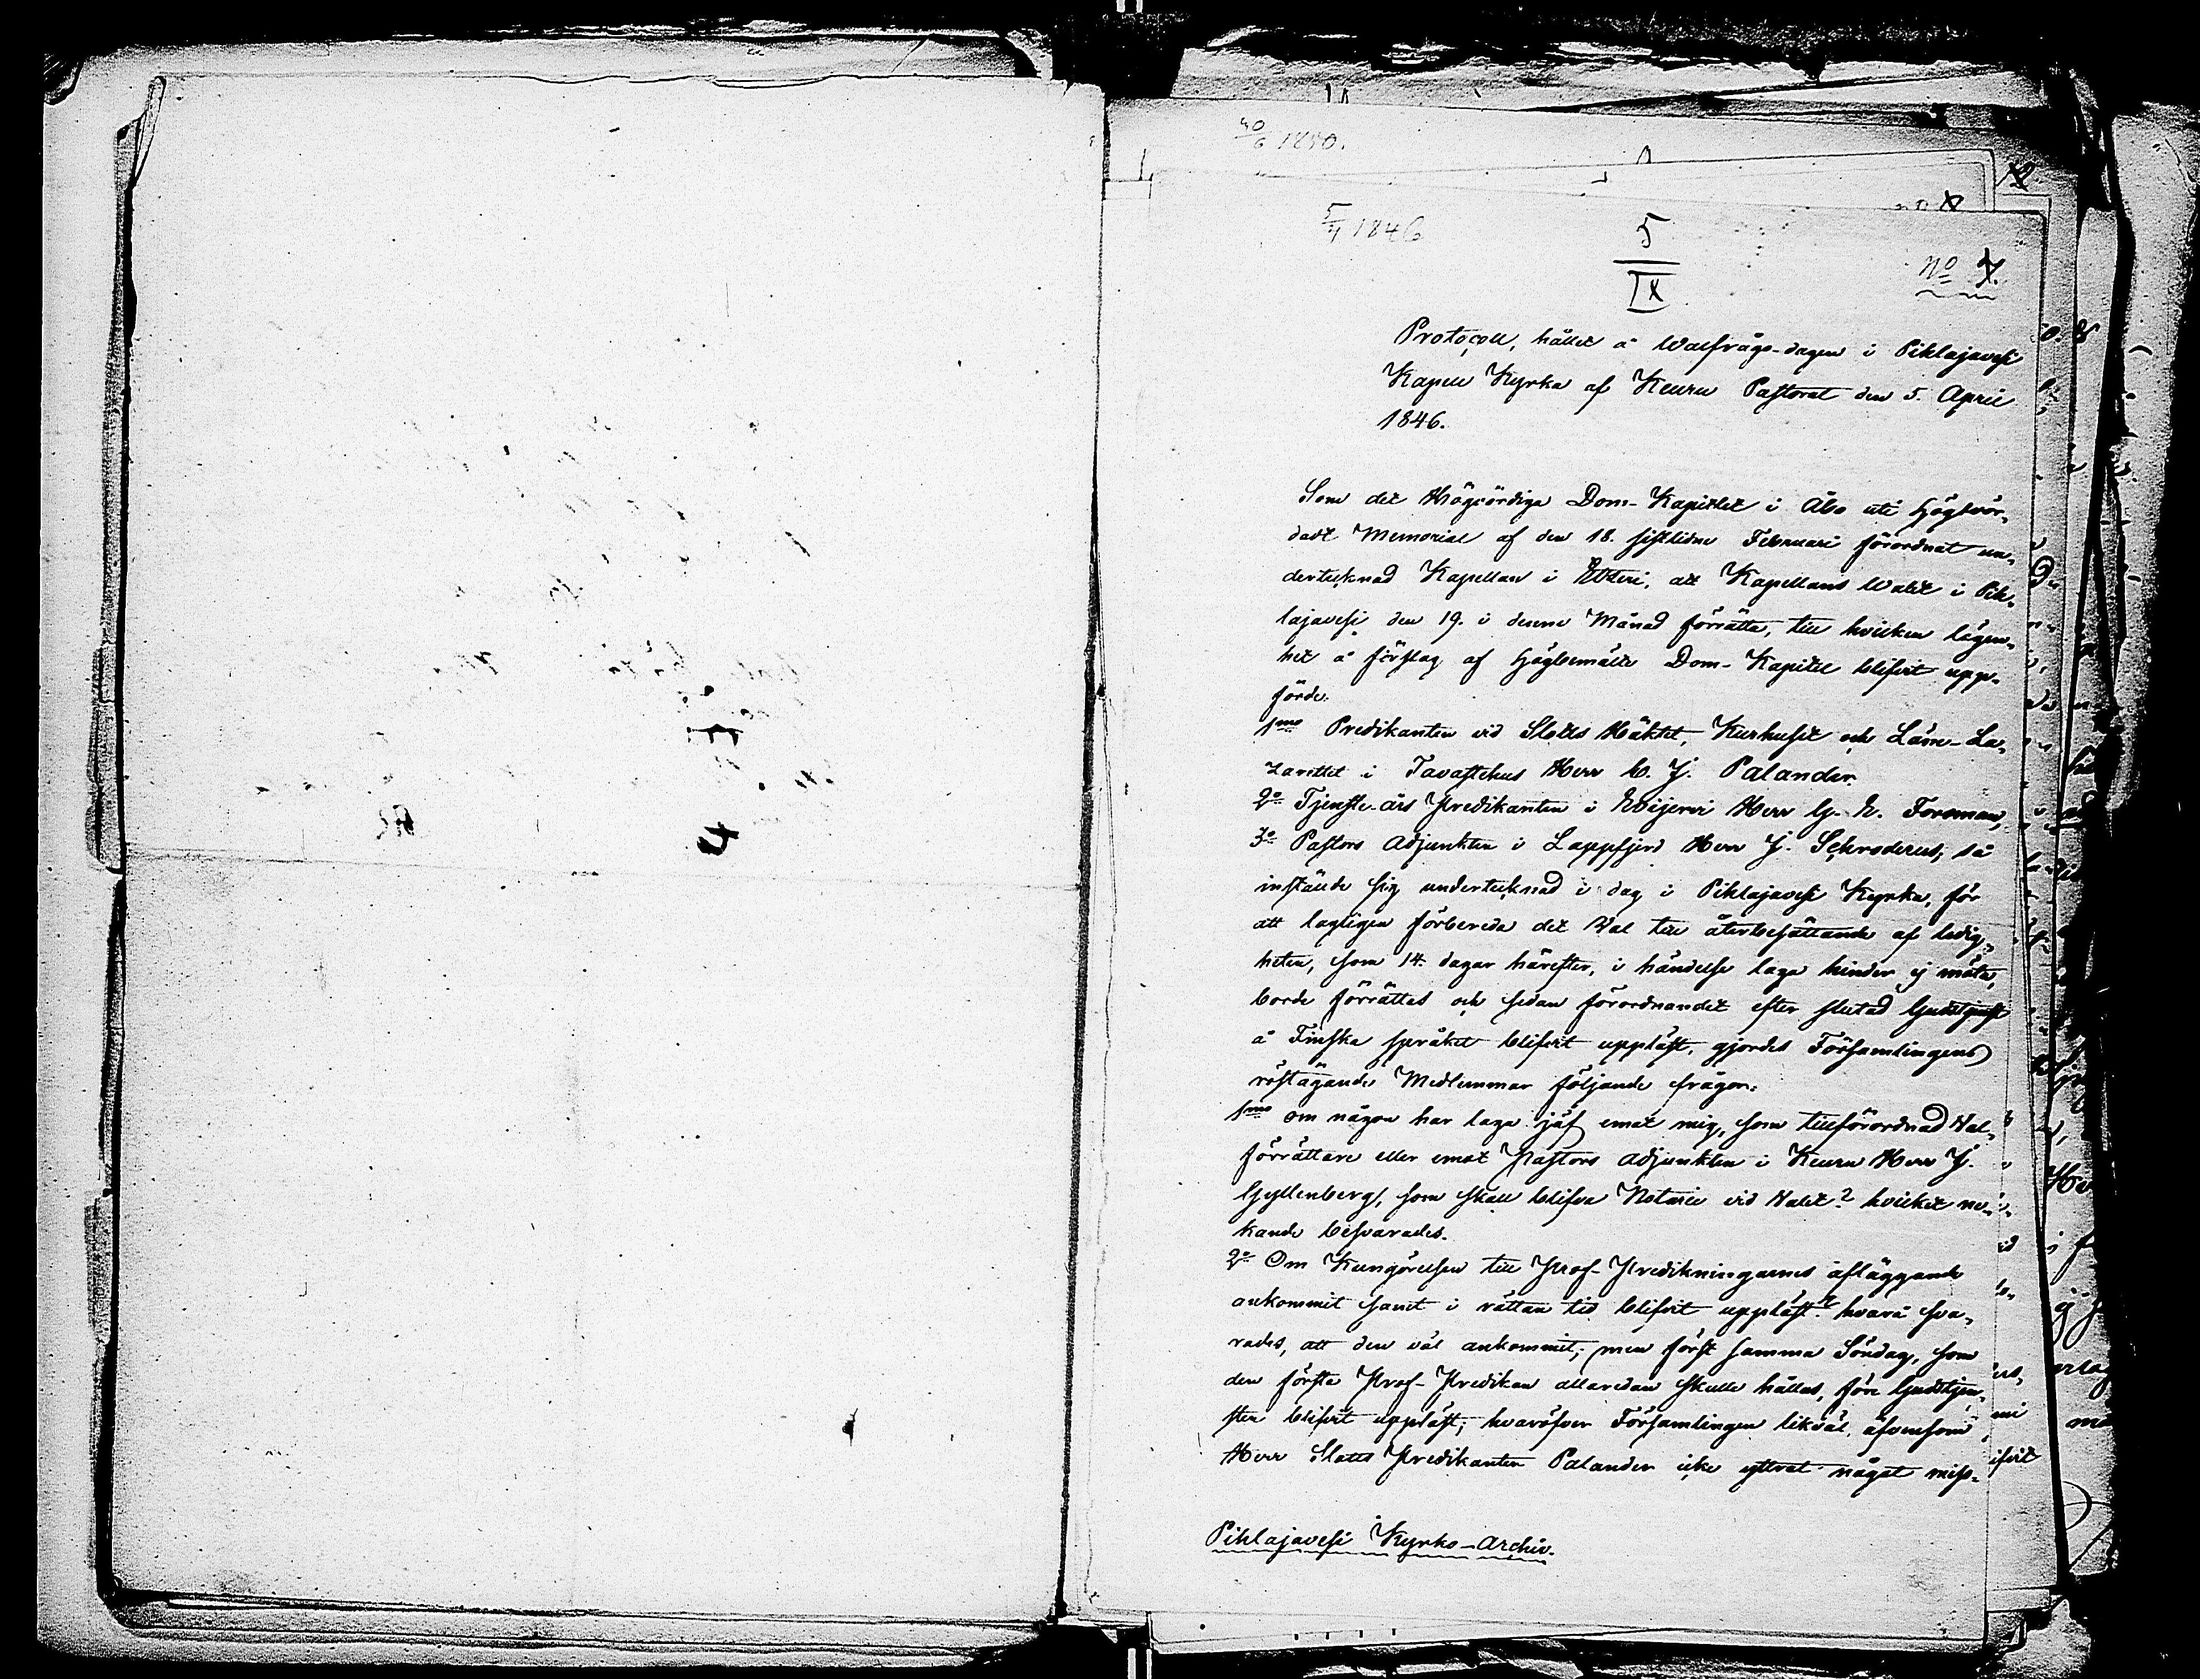 5/4 1846
5
IX
No 7.
Protocoll, hållet å Walfrågo-dagen i Pihlajavesi
Kapell Kyrka af Keuru Pastorat den 5. April
1846.
Som det Högvördiga Dom-Kapitlet i Åbo uti Högtvör-
dadt Memorial af den 18. sistlidne Februari förordnat un-
dertecknad Kapellan i Etseri, att Kapellans Walet i Pih-
lajavesi den 19. i denne Månad förrätta, till hvilken lägen-
het å förslag af Högbemälte Dom-Kapitel blifvit upp-
förde.
1mo Predikanten vid Slotts Häktet, Kurhuset och Läne-La-
zarettet i Tavastehus Herr C. J. Palander.
2o Tjenste-års Predikanten i Evijervi Herr G. E. Forsman,
3o Pastors Adjunkten i Lappfjerd Herr J. Schroderus; så
instände sig undertecknad i dag i Pihlajavesi Kyrka, för
att lagligen förbereda det Val till återbesättande af ledig-
heten, som 14. dagar härefter, i händelse laga hinder ej möta,
borde förrättas och sedan förordnandet efter slutad Gudstjenst
å Finska språket blifvit uppläst, gjordes Församlingens
röstägande Medlemmar följande frågor:
1mo om någon har laga jäf emot mig, som tillförordnad Val-
förrättare eller emot Pastors Adjunkten i Keuru Herr J.
Gyllenberg, som skall blifva Notarie vid Valet? hvilket ne-
kande besvarades.
2o Om Kungörelsen till Prof-Predikningarnes afläggande
ankommit samt i rättan tid blifvit uppläst? hvarå sva-
rades, att den väl ankommit, men först samma Söndag, som
den första Prof-Predikan allaredan skulle hållas, före Gudstjen-
sten blifvit uppläst; hvaröfver Församlingen likväl, äfvensom
Herr Slotts Predikanten Palander icke yttrat något miss-
Pihlajavesi Kyrko-Archiv.